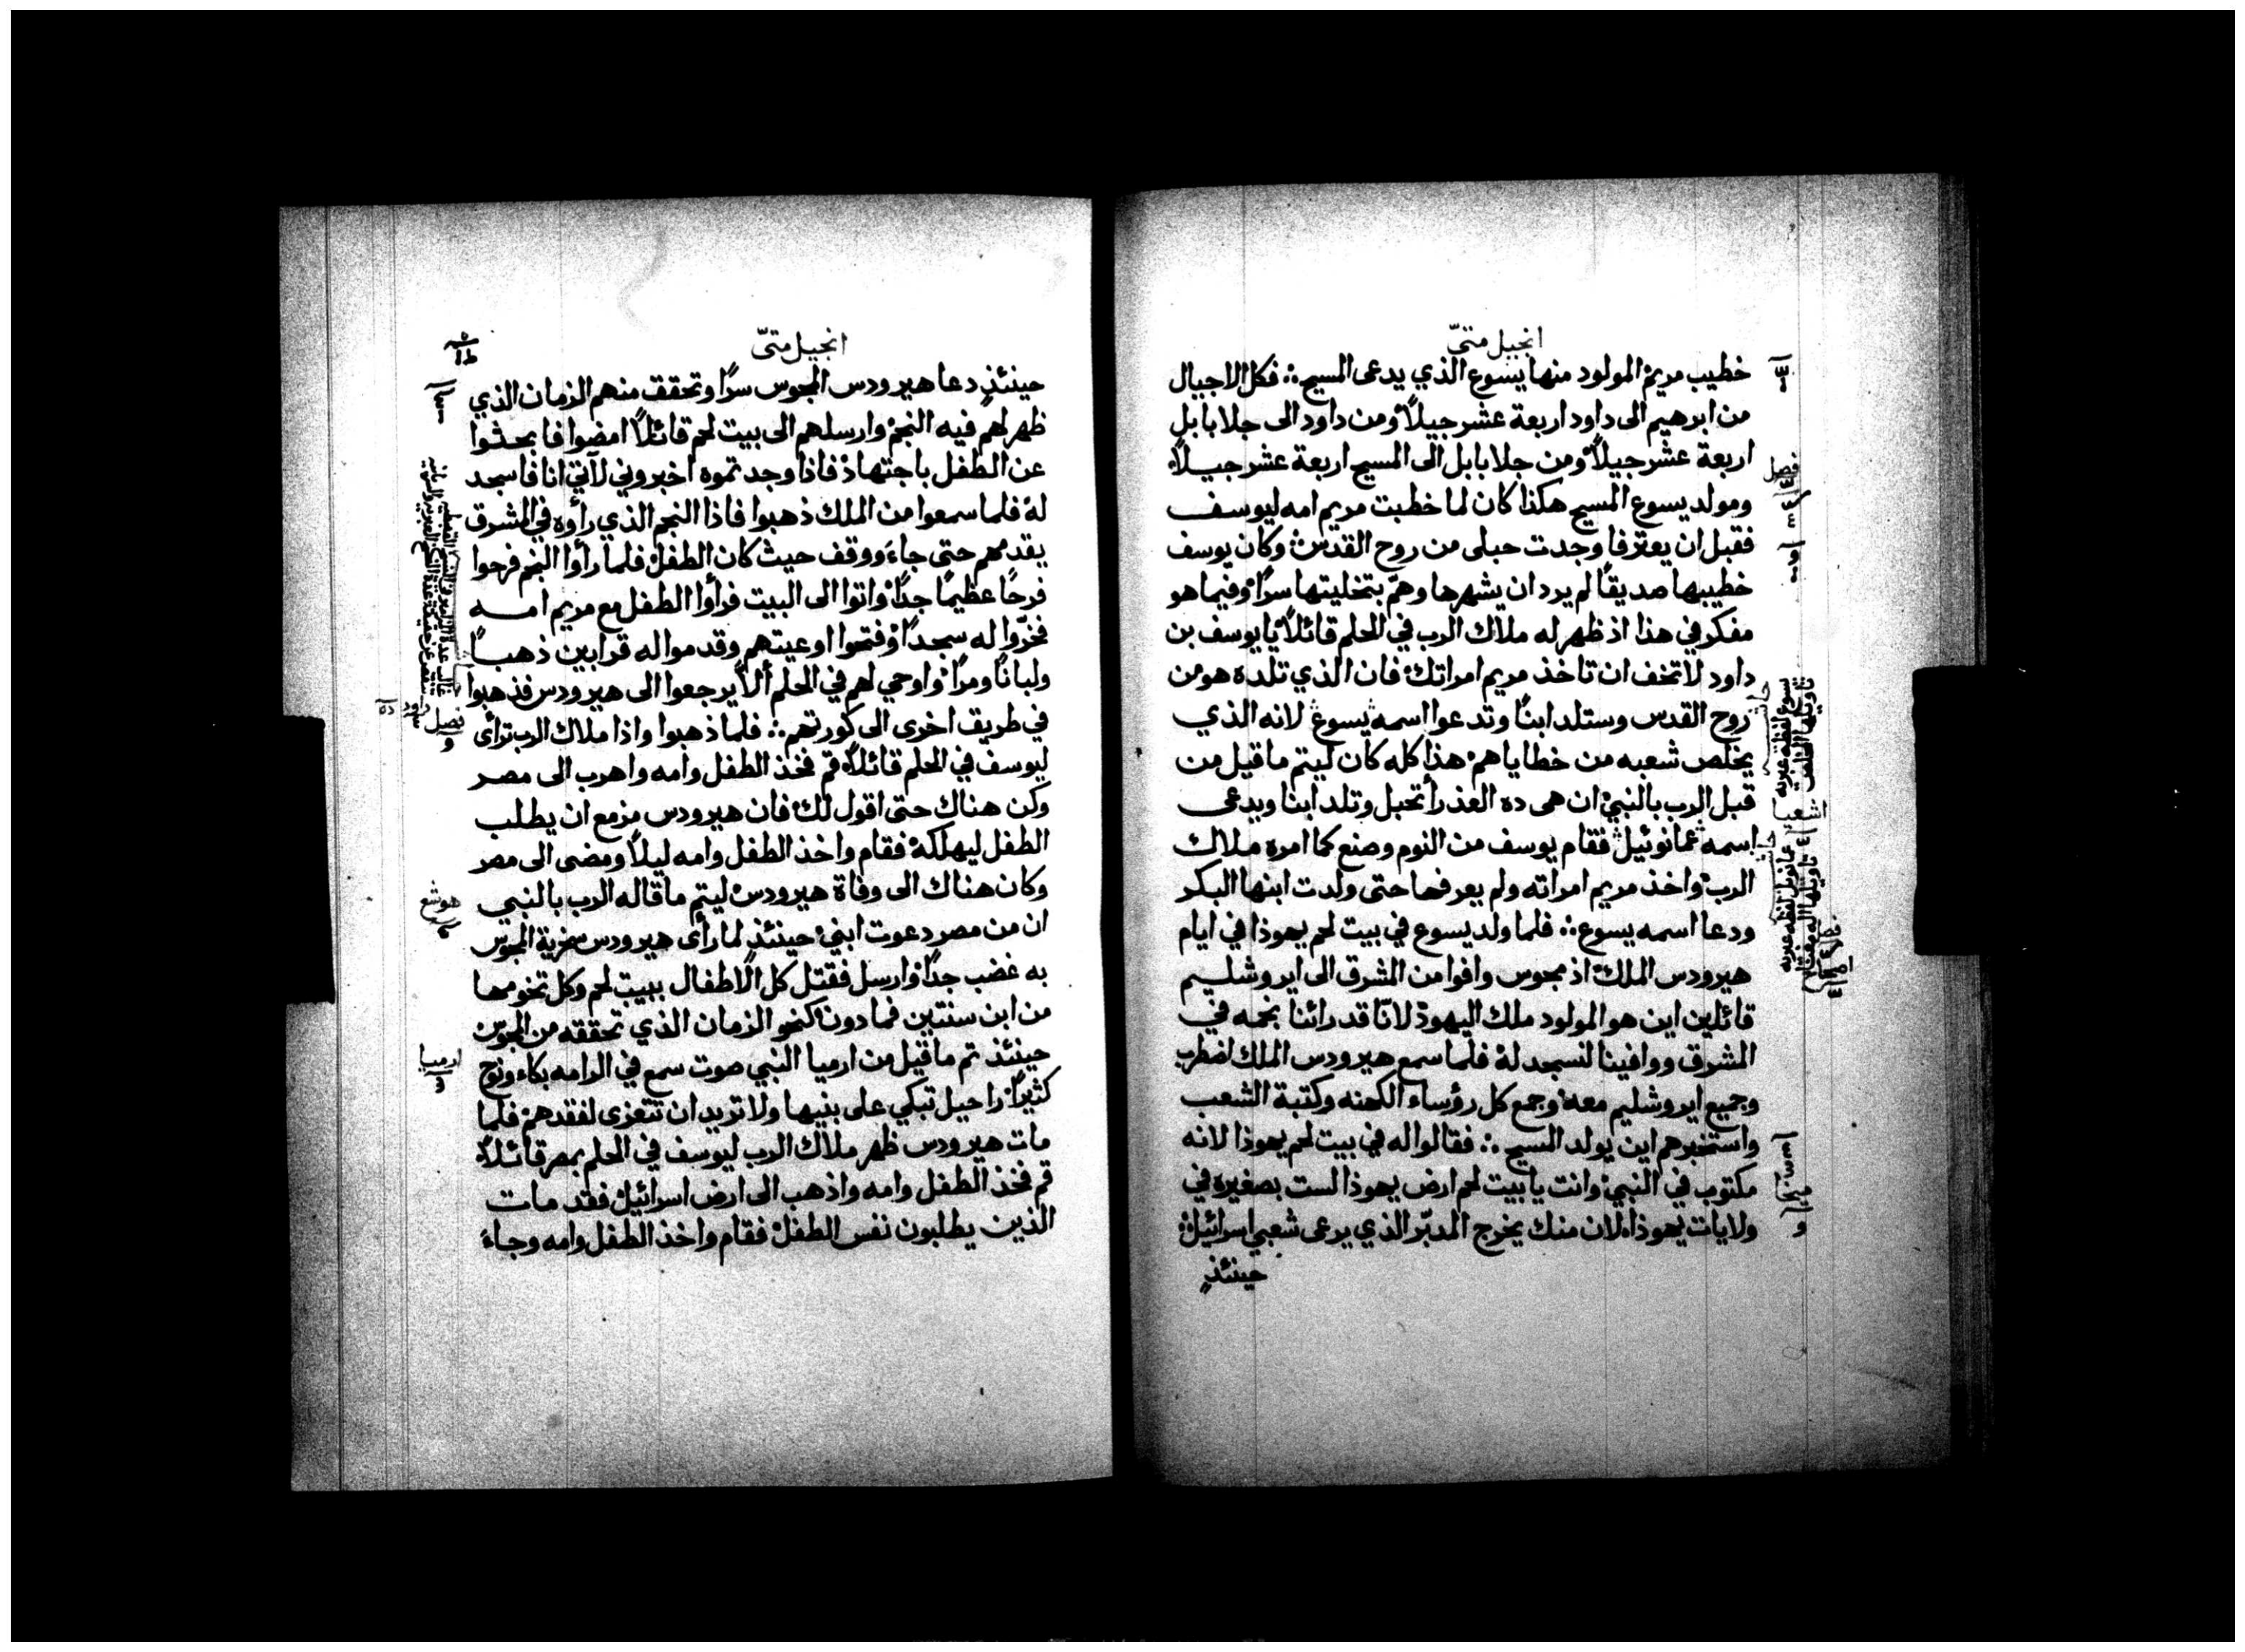 انجيل متىّ
خطيب مريم المولود منها يسوع الذي يدعى المسيح ∴ فكل الاجيال
من ابرهيم الى داود اربعة عشر جيلاً ومن داود الى جلا بابل
اربعة عشر جيلاً ومن جلا بابل الى المسيح اربعة عشر جيلاً
ومولد يسوع المسيح هكذا كان لما خطبت مريم امه ليوسف
فقبل ان يعترفا وجدت حبلى من روح القدس وكان يوسف
خطيبها صديقًا لم يرد ان يشهرها وهمّ بتخليتها سرًا وفيما هو
مفكر في هذا اذ ظهر له ملاك الرب في الحلم قائلاً يا يوسف بن
داود لا تخف ان تاخذ مريم امراتك فان الذي تلده هو من
روح القدس وستلد ابنًا وتدعوا اسمه يسوع لانه الذي
يخلص شعبه من خطاياهم هذا كله كان ليتم ما قيل من
قبل الرب بالنبي ان هى ده العذرأ تحبل وتلد ابنا ويدعى
اسمه عمانوئيل فقام يوسف من النوم وصنع كما امره ملاك
الرب واخذ مريم امراته ولم يعرفها حتى ولدت ابنها البكر
ودعا اسمه يسوع ∴ فلما ولد يسوع في بيت لحم يهوذا في ايام
هيرودس الملك اذ مجوس وافوا من الشرق الى ايروشليم
قائلين اين هو المولود ملك اليهود لانّا قد رائنا نجمه في
المشرق ووافينا لنسجد له فلما سمع هيرودس الملك اضطرب
وجميع ايروشليم معه وجمع كل رؤساء الكهنه وكتبة الشعب
واستخبرهم اين يولد المسيح ∴ فقالوا له في بيت لحم يهوذا لانه
مكتوب في النبي وانت يا بيت لحم ارض يهوذا لست بصغيره في
ولايات يهوذا لان منك يخرج المدبّر الذي يرعى شعبي اسرائيل
حينئذٍ
فصل
يسوع لفظه عبريه
تاويلها المخلص
عمانويل لفظه عبريه
تاويلها اله معنا
ميخا
انجيل متىّ
حينئذٍ دعا هيرودس المجوس سرًا وتحقق منهم الزمان الذي
ظهر لهم فيه النجم وارسلهم الى بيت لحم قائلاً امضوا فابحثوا
عن الطفل باجتهاد فاذا وجدتموه اخبروني لآتي انا فاسجد
له فلما سمعوا من الملك ذهبوا فاذا النجم الذي رأوه في المشرق
يقدمهم حتى جاءَ ووقف حيث كان الطفل فلما رأوا النجم فرحوا
فرحًا عظيمًا جدًا واتوا الى البيت فرأوا الطفل مع مريم امه
فخرّوا له سجدًا وفتحوا اوعيتهم وقدموا له قرابين ذهبًا
ولبانًا ومرًا واوحي لهم في الحلم ألاّ يرجعوا الى هيرودس فذهبوا
في طريق اخرى الى كورتهم ∴ فلما ذهبوا واذا ملاك الرب ترأى
ليوسف في الحلم قائلاً قم فخذ الطفل وامه واهرب الى مصر
وكن هناك حتى اقول لك فان هيرودس مزمع ان يطلب
الطفل ليهلكه فقام واخذ الطفل وامه ليلاً ومضى الى مصر
وكان هناك الى وفاة هيرودس ليتم ما قاله الرب بالنبي
ان من مصر دعوت ابني حينئذٍ لما رأى هيرودس سخرية المجوس
به غضب جدًا وارسل فقتل كل الاطفال ببيت لحم وكل تخومها
من ابن سنتين فما دون كنحو الزمان الذي تحققه من المجوس
حينئذ تم ما قيل من ارميا النبي صوت سمع في الرامه بكاء ونوح
كثيرًا راحيل تبكي على بنيها ولا تريد ان تتعزى لفقدهم فلما
مات هيرودس ظهر ملاك الرب ليوسف في الحلم بمصر قائلاً
قم فخذ الطفل وامه واذهب الى ارض اسرائيل فقد مات
الذين يطلبون نفس الطفل فقام واخذ الطفل وامه وجاء
فصل
هوشع
ارميا